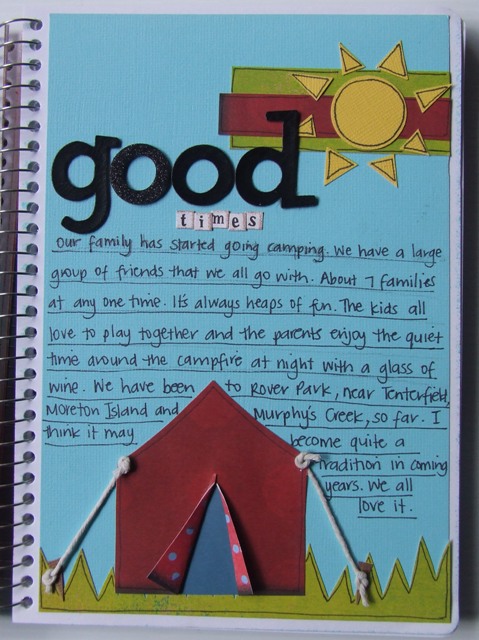 good
times
our family has started going camping. We have a large
group of friends that we all go with. About 7 families
at any one time. It's always heaps of fun. The kids all
love to play together and the parents enjoy the quiet
time around the campfire at night with a glass of
wine. We have been to Rover Park, near Tenterfield,
Moreton Island and Murphy's Creek, so far. I
think it may become quite a
tradition in coming
years. We all
love it.